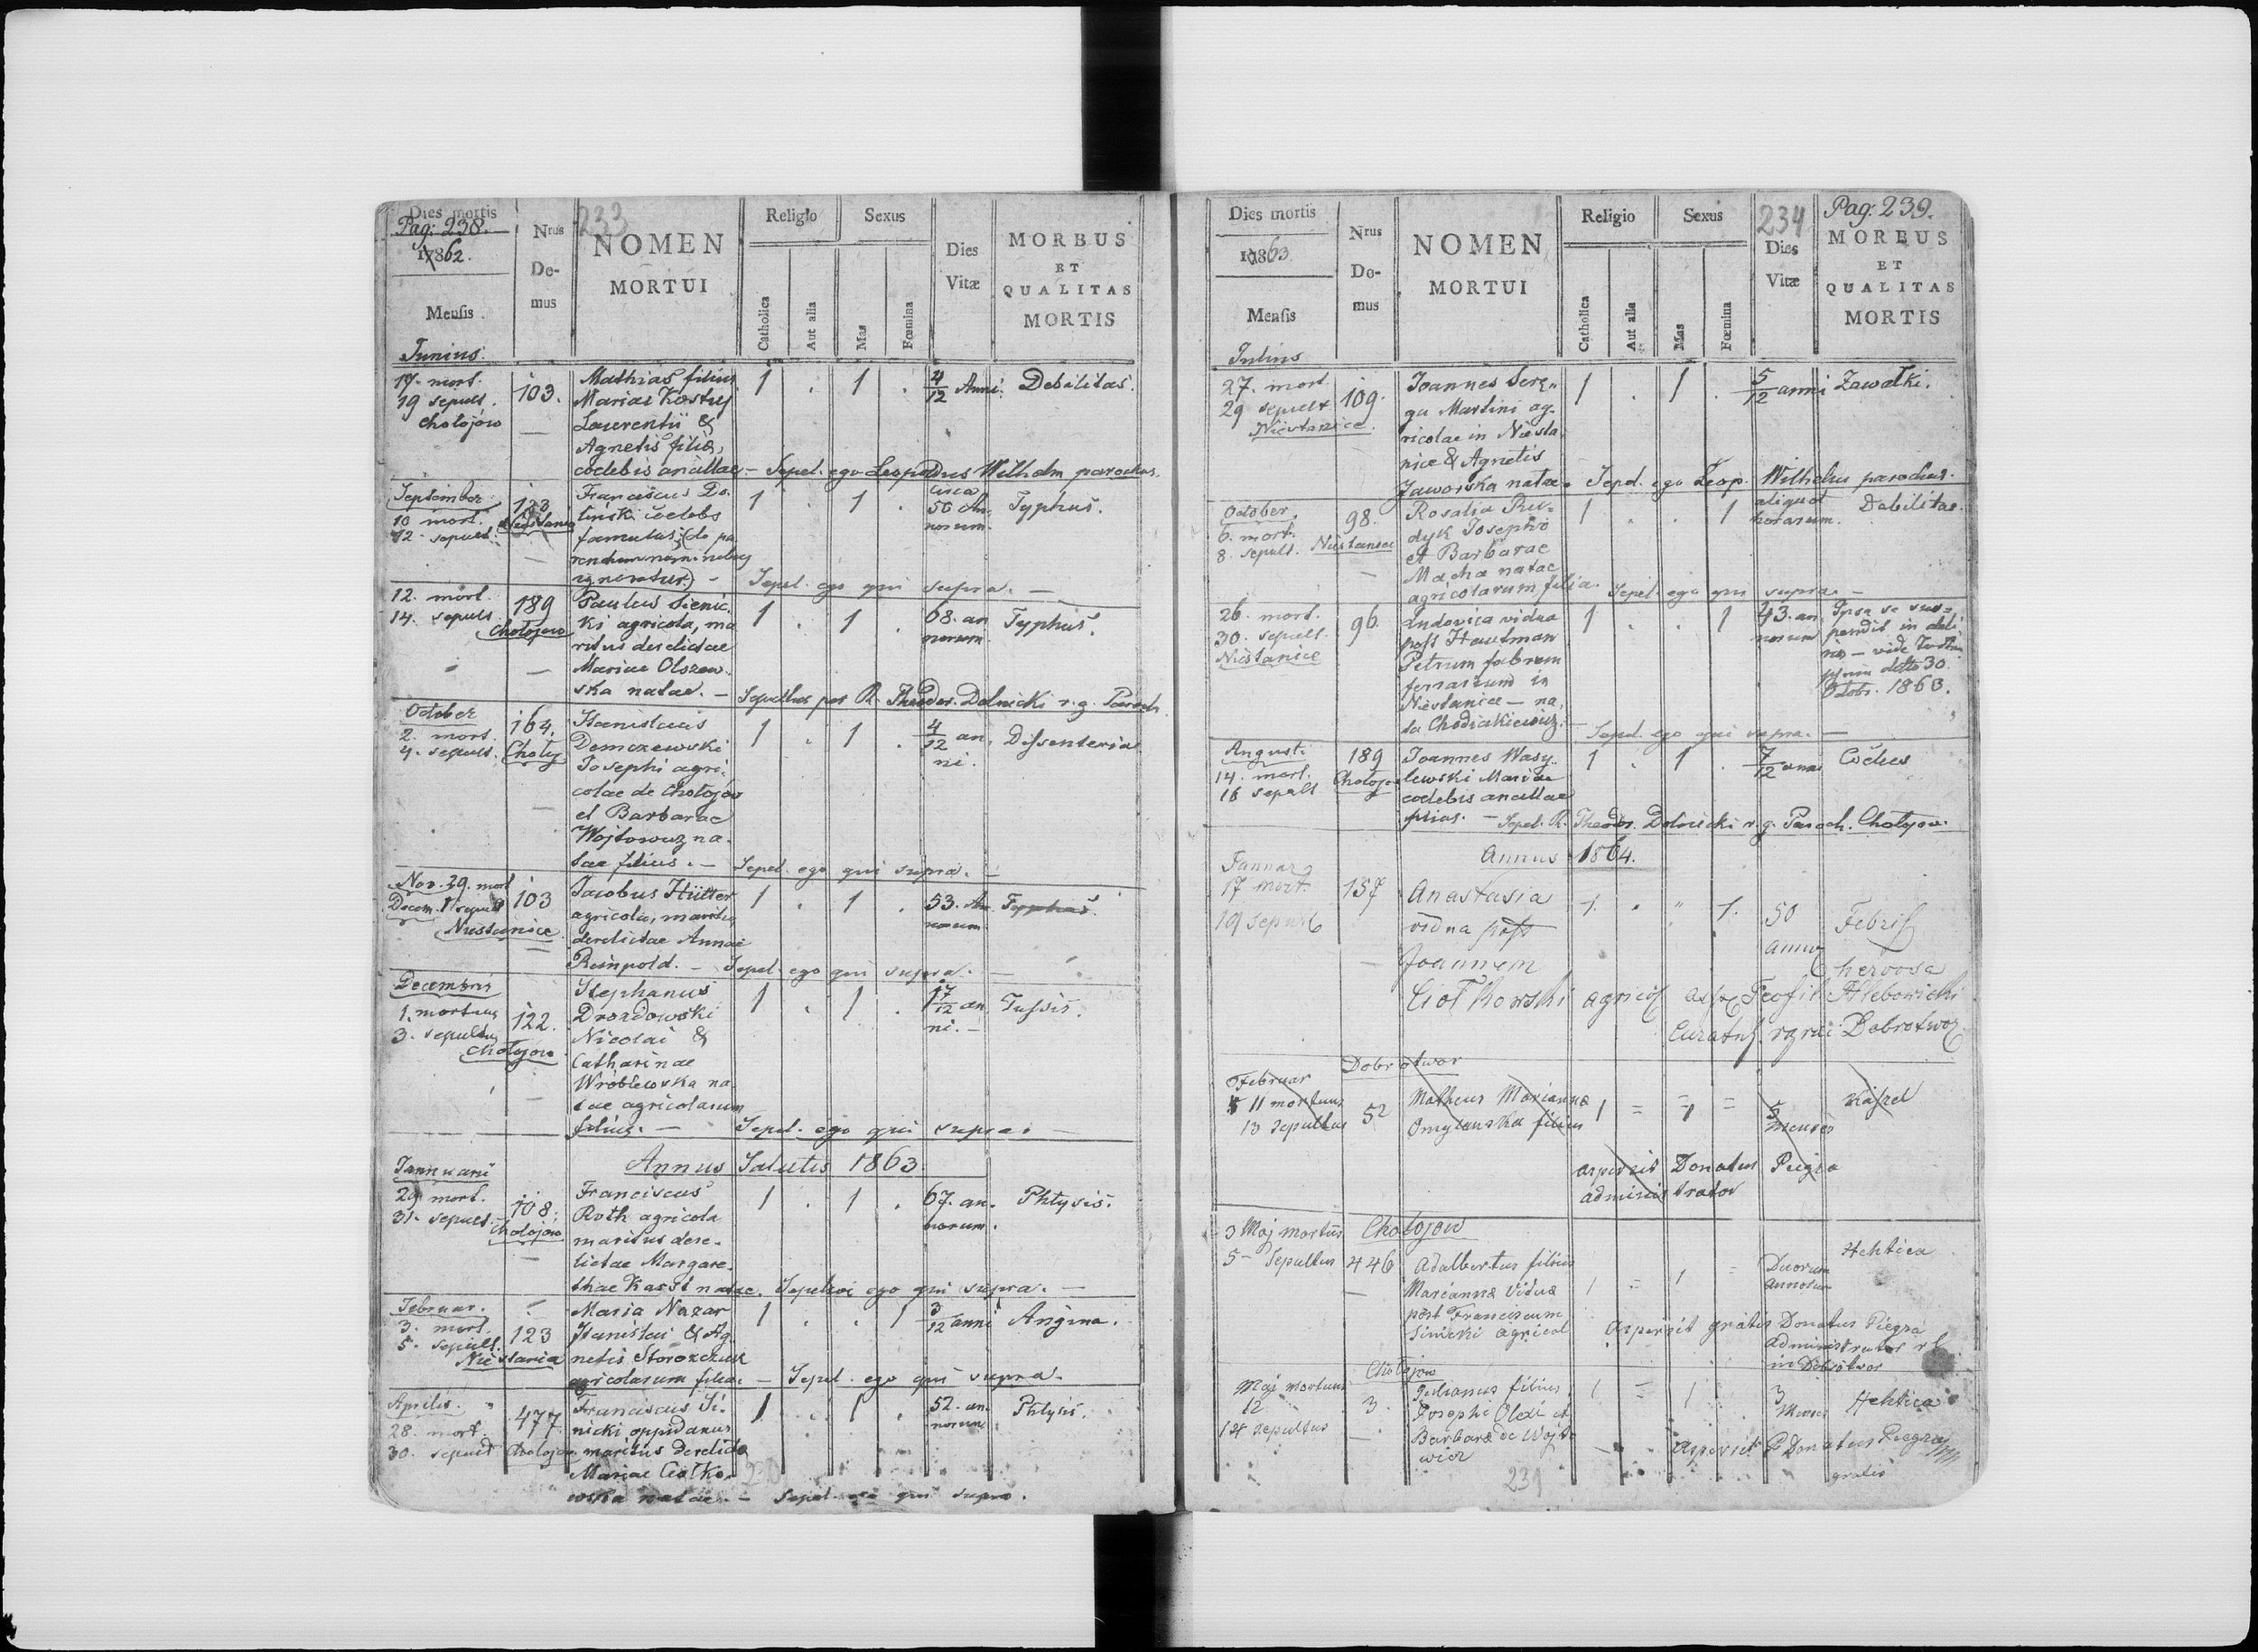 Dies mortis
Pag: 238.
1862.
Mensis
Junius.
Nrus
Do-
mus
233
NOMEN
MORTUI
Religio
Catholica
Aut alia
Sexus
Mas
Fœmina
Dies
Vitæ
MORBUS
ET
QUALITAS
MORTIS
17. mort. 103. Mathias filius 1 . 1 . 4/12 Anni. Debilitas.
19 sepult. Mariae Kostuj
Chołojów Laurentii &
Agnetis filiæ,
coelebis ancillae. – Sepel. ego Leopoldus Wilhelm parochus.
September 123 Franciscus Do- 1 . 1 . circa
10 mort. liński coelebs 50 An- Typhus.
12. sepult. famulus (de pa- norum.
rentum nomine
ignoratur) – Sepel. ego qui supra. –
12. mort. 189 Paulus Sienic- 1 . 1 . 68. an Typhus.
14. sepult. Chołojow ki agricola, ma- norum.
ritus derelictae
Mariae Olszew-
ska natae. – Sepultus per R. Theodor. Dolnicki r. g. Paroch.
October 164. Stanislaus 1 . 1 . 4/12 an- Dissenteria
2. mort. Chołoj Demczewski ni.
4. sepult. Josephi agri-
colae de Chołojów
et Barbarae
Wojtowicz na-
tae filius. – Sepel. ego qui supra. –
Nov. 29. mort 103 Jacobus Hütter 1 . 1 . 53. An Typhus.
Decem. 1 sepult agricola, maritus norum.
Niestanice derelictae Annae
Reinpold. – Sepel. ego qui supra. –
Decembris Stephanus 1 . 1 . 1 7/12 an Tussis.
1. mortuus 122. Drozdowski ni. –
3. sepultus Nicolai &
Chołojow Catharinae
Wróblewska na-
tae agricolarum
filius. – Sepel. ego qui supra. –
Annus Salutis 1863.
Januarii
29 mort. 108. Franciscus 1 . 1 . 67. an- Phtysis.
31. sepult. Chołojow Roth agricola norum.
maritus dere-
lictae Margare-
thae Kassl natae. Sepelivi ego qui supra. –
Februar. Maria Nazar 1 . . 1 3/12 anni Angina.
3. mort. 123 Stanislai & Ag-
5. sepult. netis Storozczuk
Niestania agricolarum filia. – Sepel. ego qui supra.
Aprilis. Franciscus Si- 1 . 1 . 52. an- Phtysis.
28. mort. 477 nicki oppidanus norum.
30. sepult Chołojow maritus derelictae
Mariae Ciołko-
wska natae. – Sepel. ego qui supra.
Dies mortis
1863.
Mensis
Julius
Nrus
Do-
mus
NOMEN
MORTUI
Religio
Catholica
Aut alia
Sexus
Mas
Fœmina
234
Dies
Vitæ
Pag: 239.
MORBUS
ET
QUALITAS
MORTIS
27. mort. 109. Joannes Ser- 1 . 1 . 5/12 anni Zawałki.
29 sepult ga Martini ag-
Niestanice. ricolae in Niesta-
nice & Agnetis
Jaworska natae. Sepel. ego Leop. Wilhelm parochus.
October. 98. Rosalia Ru- 1 . . 1 aliquot Debilitas.
6. mort. dyk Josephi horarum.
8. sepult. Niestanice et Barbarae
Macha natae
agricolarum filia. Sepel. ego qui supra. –
26. mort. 96. Ludovica vidua 1 . . 1 43. an Ipsa se sus-
30. sepult. post Hautman norum pendit in deli-
Niestanice Petrum fabrum rio – vide
ferrarium in dtto 30.
Niestanice – na- Octobr. 1863.
ta Chodiakiewicz. – Sepel. ego qui supra. –
Augusti 189 Joannes Wasy- 1 . 1 . 7/12 anni
14. mort. Chołojow lewski Mariae
16 sepult coelebis ancillae
filius. – Sepel. R. Theodor. Dolnicki r. g. Paroch. Chołojow.
Annus 1864.
Januar
17 mort. 157 Anastasia 1. . " 1. 50 Febris
19 sepult vidua post annor nervosa
Joannem
Ciołkowski agricol Teofil Hlebowicki
Curatus r gr Dobrotwor
Dobrotwor
Februar
11 mortuus 52 Matheus Mariannæ 1 = 1 = 5 Kaszel
13 Sepultus Omylanska filius menses
aspersit Donatus Piegza
administrator
3 Maj mortus Chołojow
5 – Sepultus 446 Adalbertus filius 1 = 1 = Duorum Hektica
Mariannæ Viduæ Annorum
post Franciscum
Sinicki agricol aspersit gratis Donatus Piegza
Administrator r l
in Dobrotwor
Chołojow
Maj mortuus 3. Julianus filius 1 = 1 3 Hektica
12 Josephi Olexi et Menses
14 sepultus Barbaræ de Wojto-
wicz aspersit P Donatus Piegza
gratis
231